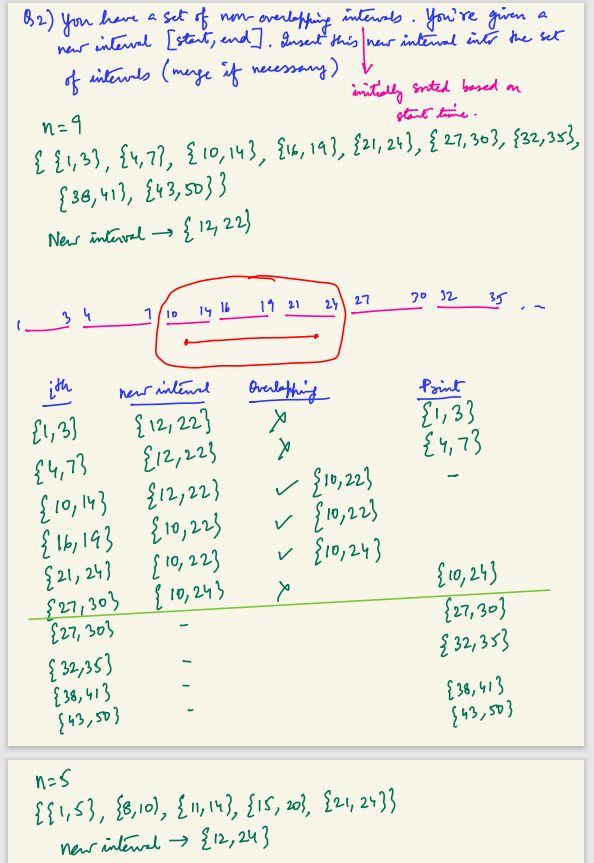 Q2) You have a set of non-overlapping intervals. You're given a
new interval [start, end]. Insert this new interval into the set
of intervals (merge if necessary)
initially sorted based on
start time.
n=9
{ {1,3}, {4,7}, {10,14}, {16,19}, {21,24}, {27,30}, {32,35},
{38,41}, {43,50} }
New interval → {12,22}
1 3 4 7 10 14 16 19 21 24 27 30 32 35 . . -
ith new interval Overlapping Print
{1,3} {12,22} ✗ {1,3}
{4,7} {12,22} ✗ {4,7}
{10,14} {12,22} ✓ {10,22} -
{16,19} {10,22} ✓ {10,22}
{21,24} {10,22} ✓ {10,24}
{27,30} {10,24} ✗ {10,24}
{27,30} - {27,30}
{32,35} - {32,35}
{38,41} - {38,41}
{43,50} - {43,50}
n=5
{{1,5}, {8,10}, {11,14}, {15,20}, {21,24}}
new interval → {12,24}